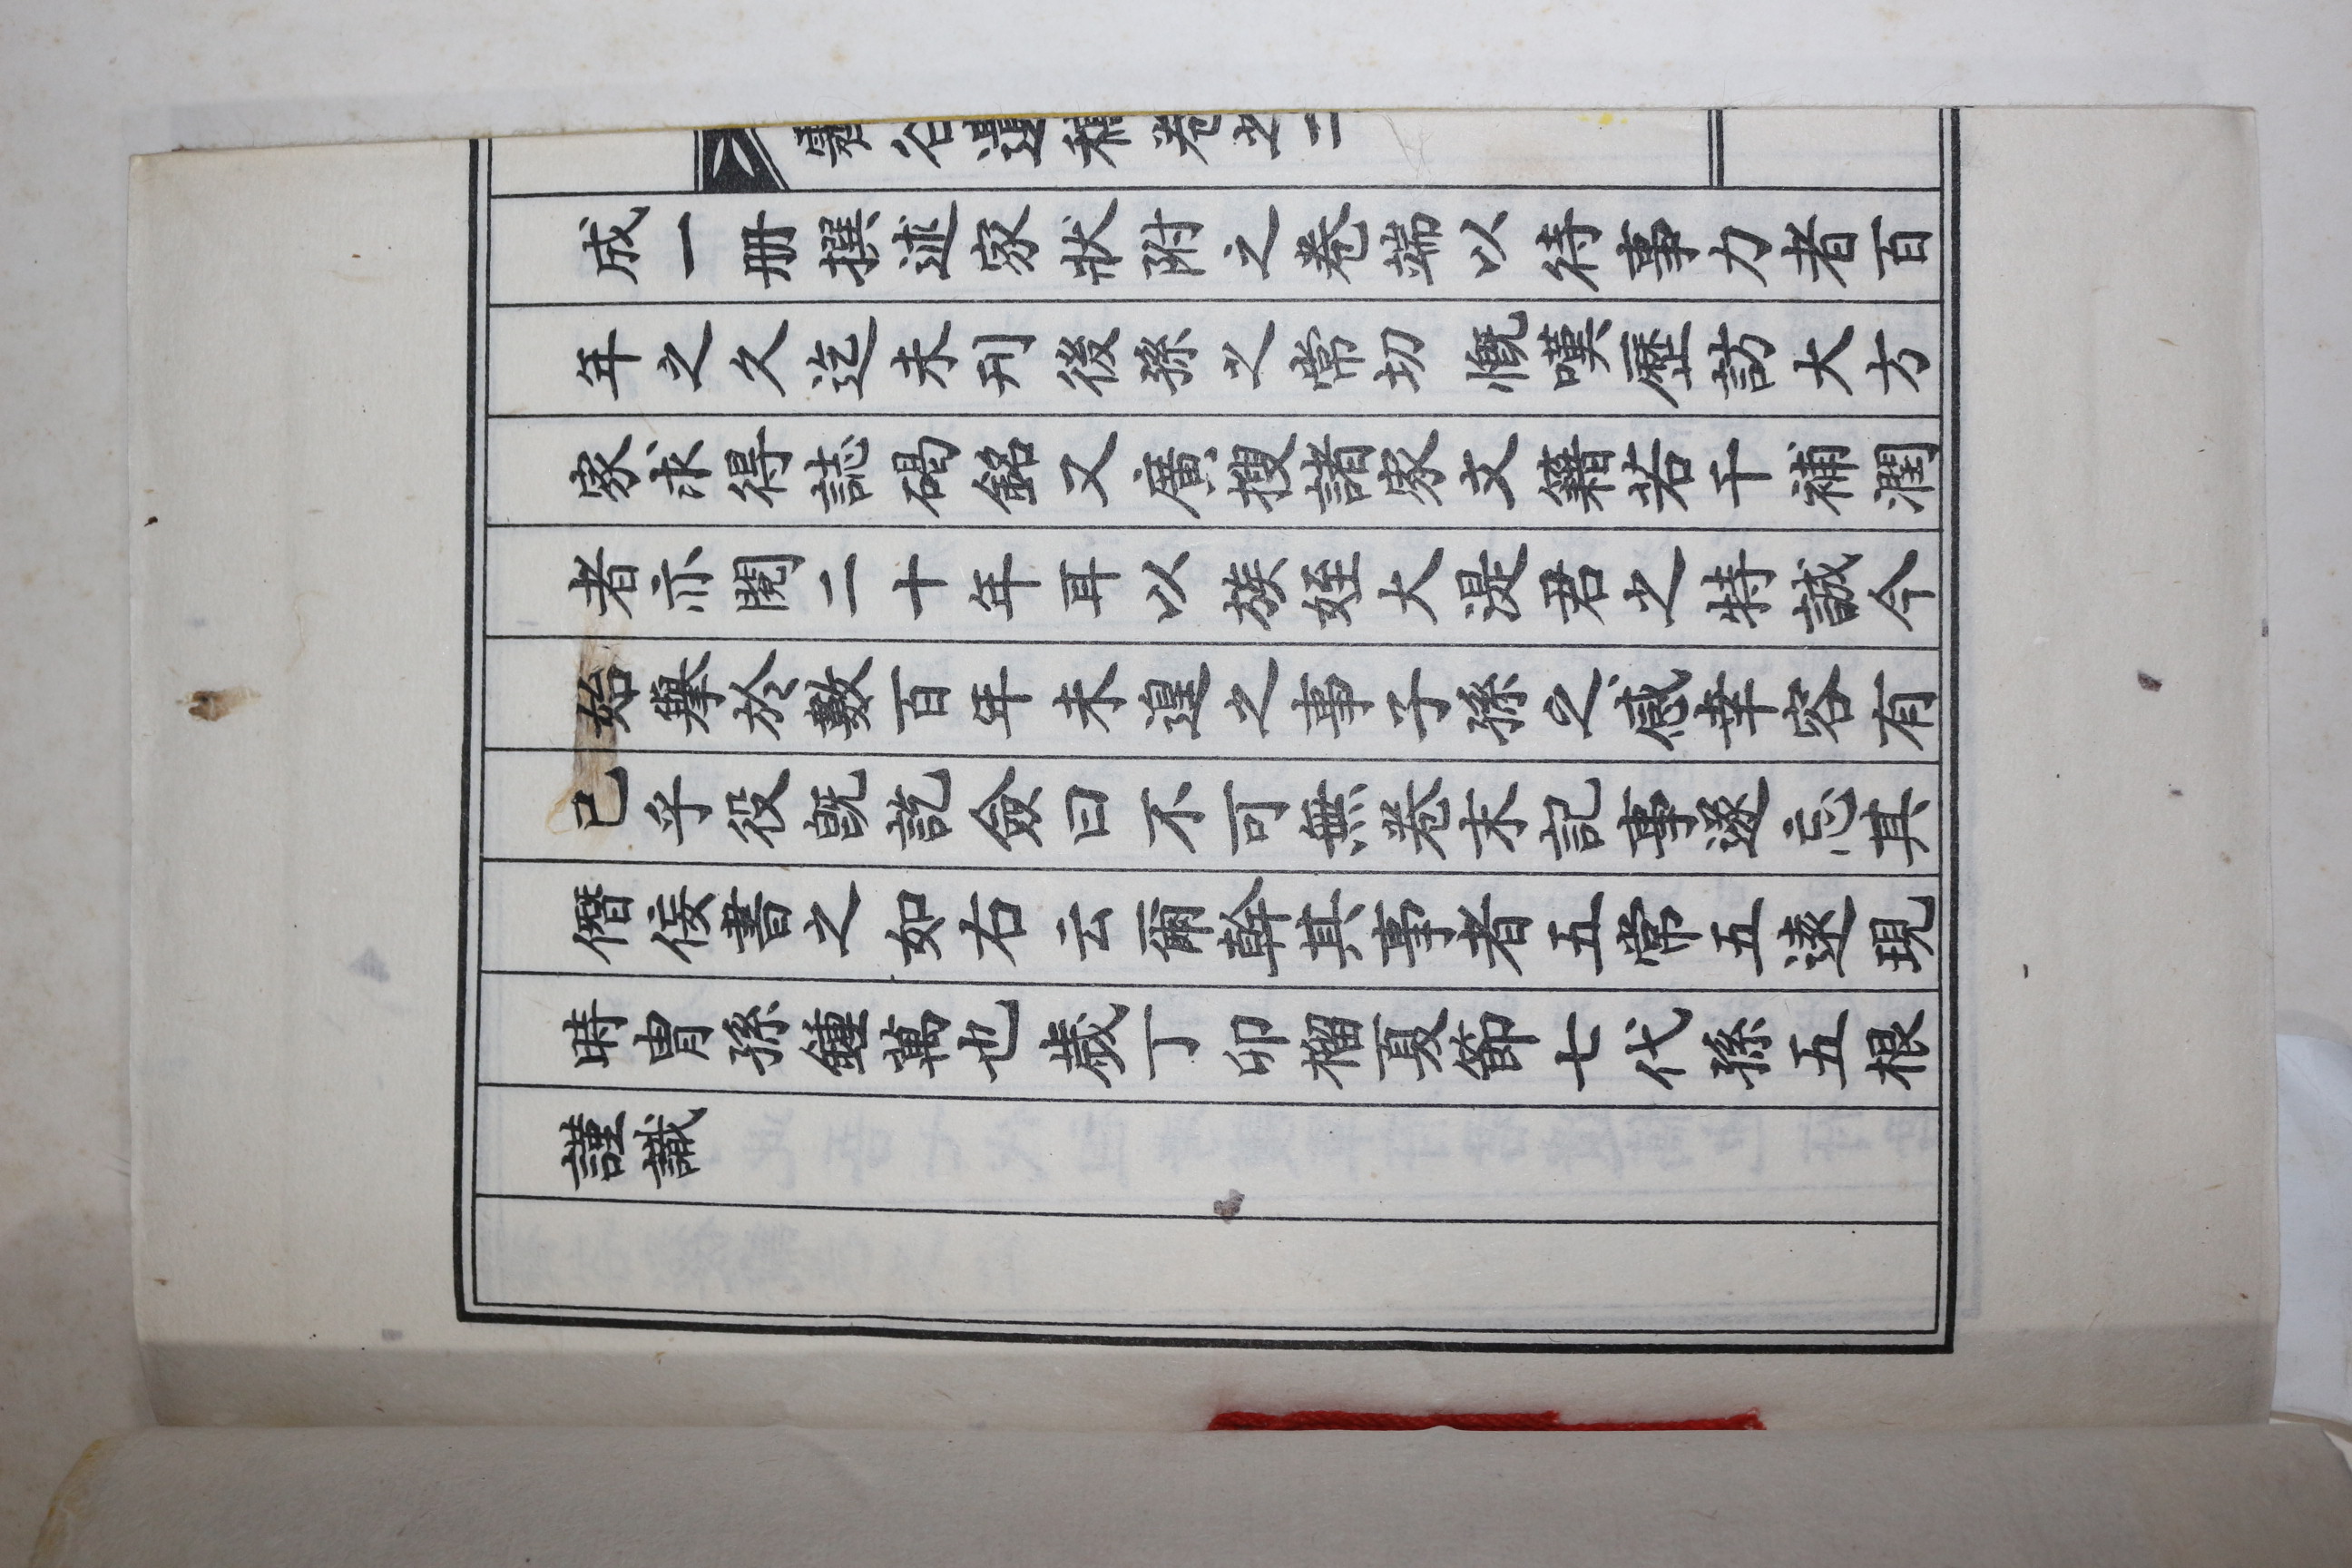 谷遺稿卷之
成一册撰述家狀附之卷端以待事力者百
年之久迄未刊後孫之常切慨嘆歷訪大方
家求得誌碣銘又廣搜諸家文籍若干補潤
者亦閱二十年耳以族姪大湜君之特誠今
始擧於數百年未遑之事子孫之感幸容有
已乎役旣訖僉曰不可無卷末記事遂忘其
僭侫書之如右云爾幹其事者五常五遠現
時胄孫鍾萬也歲丁卯榴夏節七代孫五根
謹識